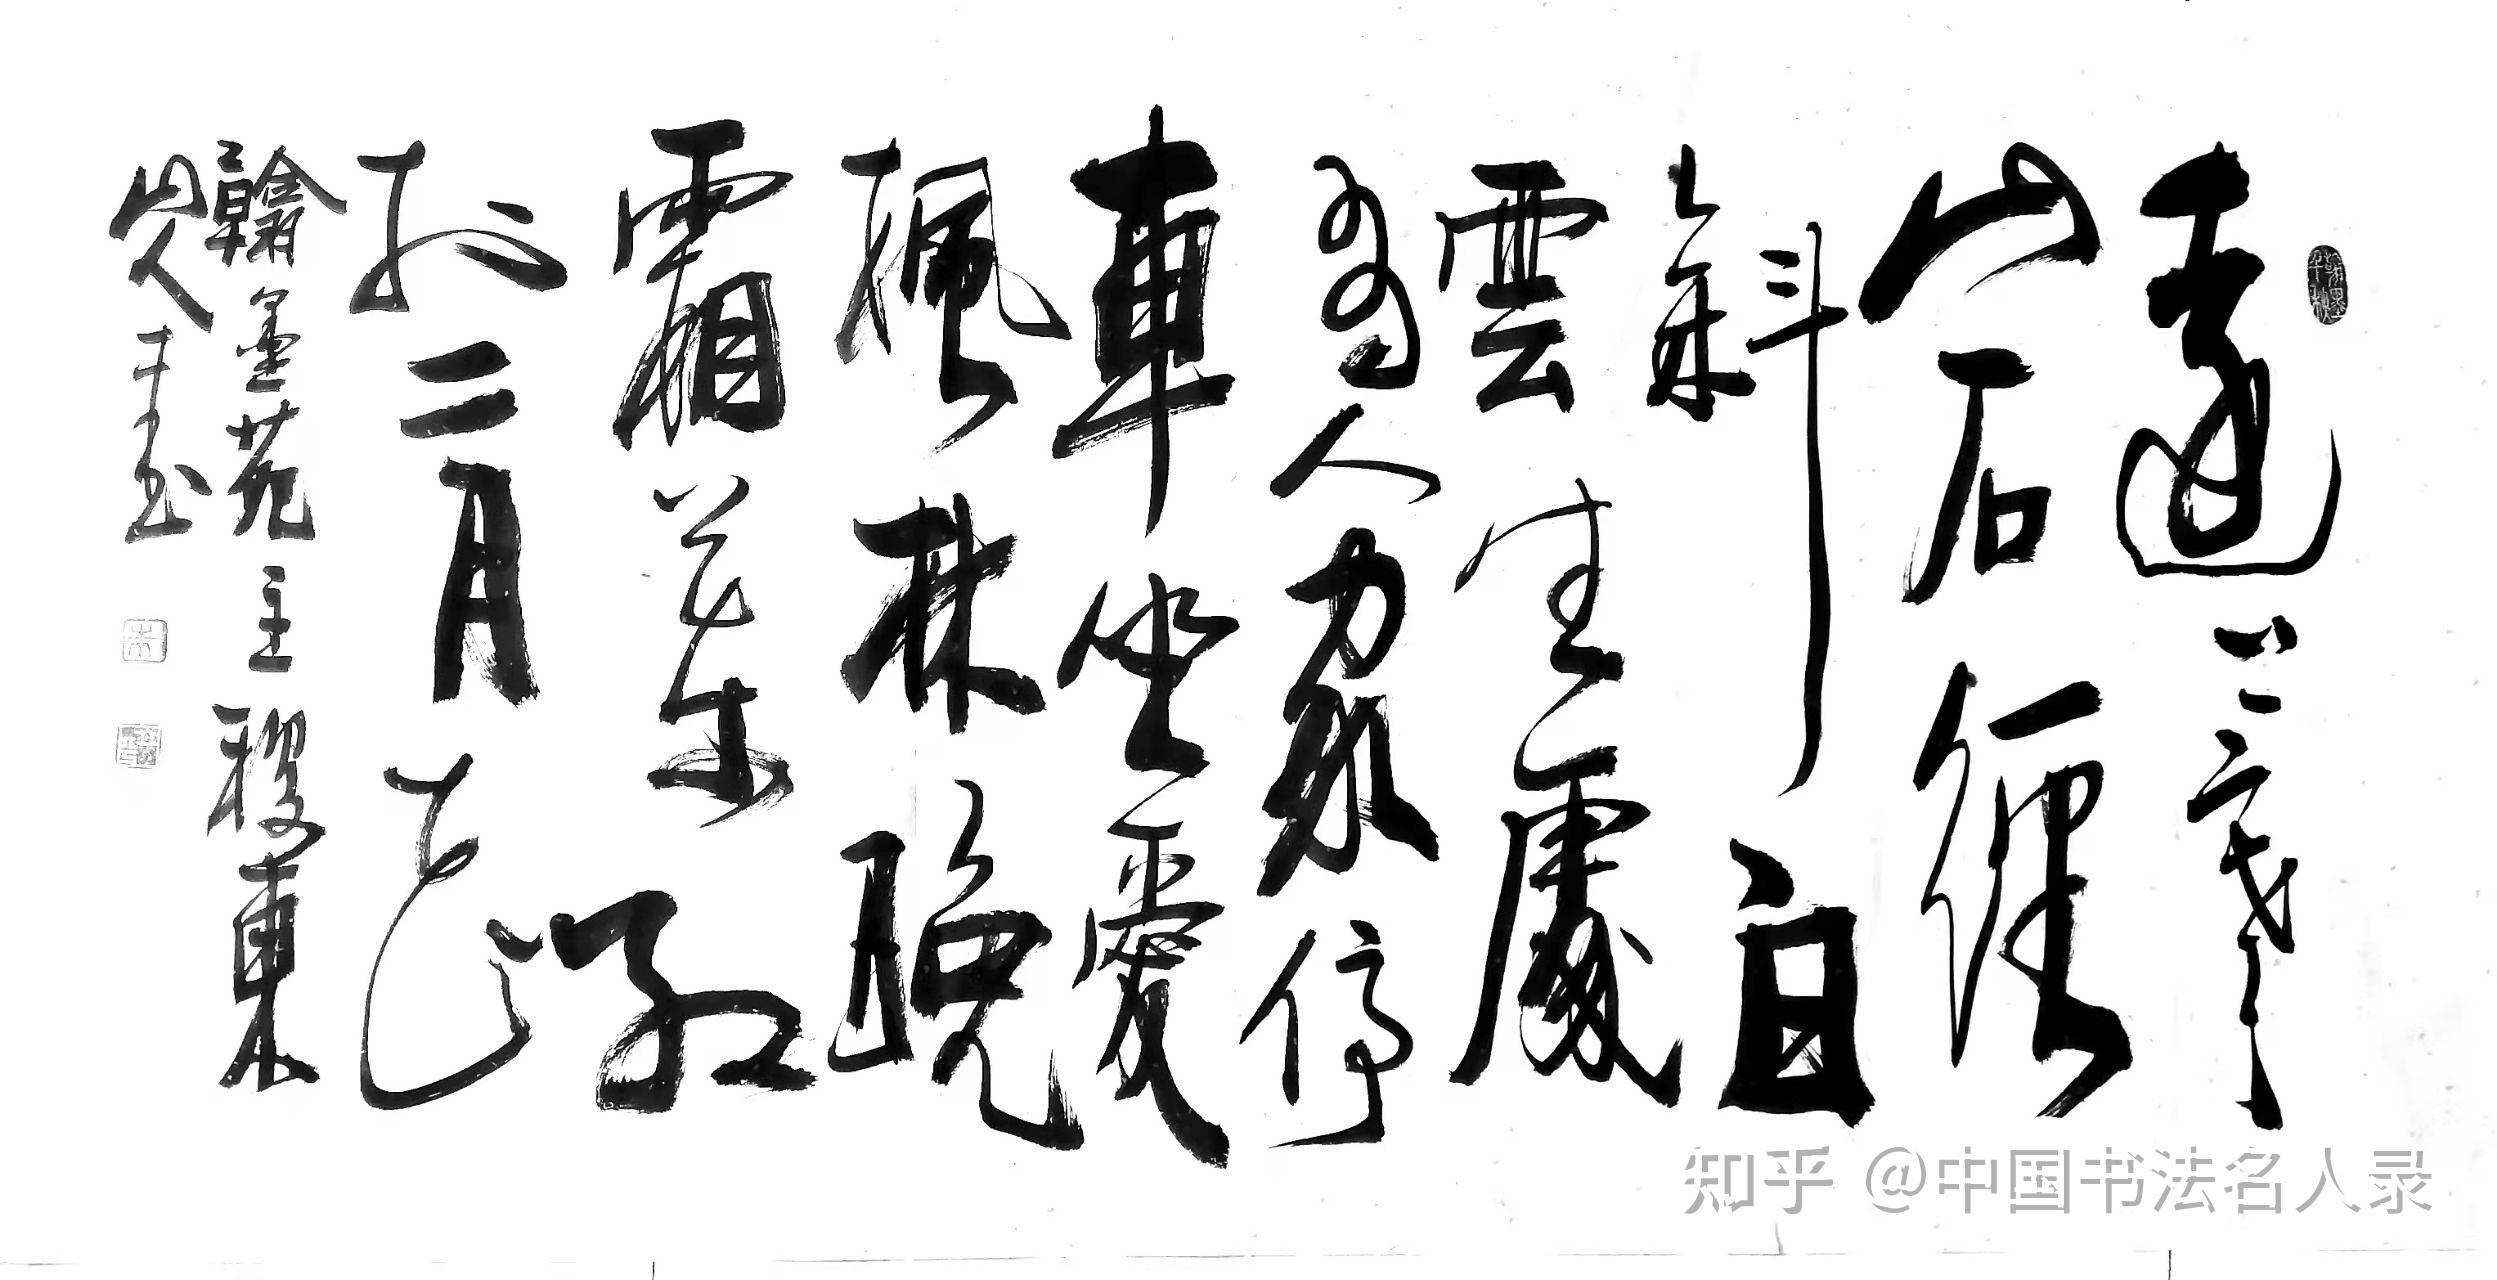 遠上寒
山石徑
斜白
雲生處
有人家停
車坐愛
楓林晚
霜葉紅
於二月花
翰墨苑主稷東
山人书
知乎 @中国书法名人录